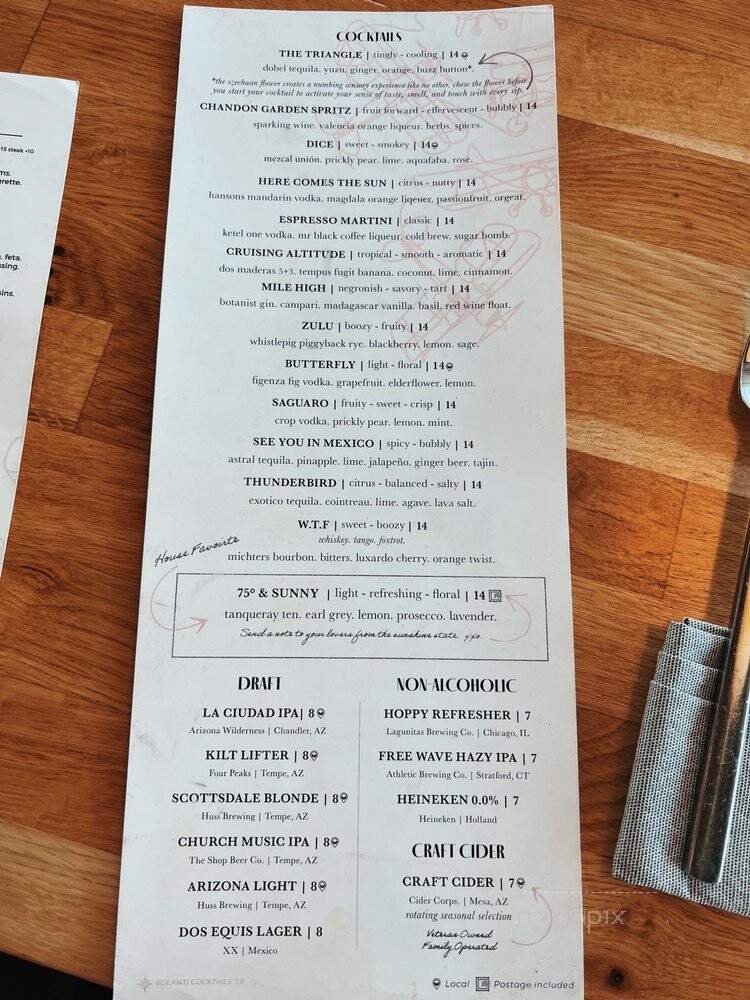 COCKTAILS
THE TRIANGLE | tingly - cooling | 14
dobel tequila. yuzu. ginger. orange. buzz button*.
*the szechuan flower creates a numbing sensory experience like no other. chew the flower before
you start your cocktail to activate your sense of taste, smell, and touch with every sip.
CHANDON GARDEN SPRITZ | fruit forward - effervescent - bubbly | 14
sparking wine. valencia orange liqueur. herbs. spices.
DICE | sweet - smokey | 14
mezcal unión. prickly pear. lime. aquafaba. rose.
HERE COMES THE SUN | citrus - nutty | 14
hansons mandarin vodka. magdala orange liqeuer. passionfruit. orgeat.
ESPRESSO MARTINI | classic | 14
ketel one vodka. mr black coffee liqueur. cold brew. sugar bomb.
CRUISING ALTITUDE | tropical - smooth - aromatic | 14
dos maderas 5+3. tempus fugit banana. coconut. lime. cinnamon.
MILE HIGH | negronish - savory - tart | 14
botanist gin. campari. madagascar vanilla. basil. red wine float.
ZULU | boozy - fruity | 14
whistlepig piggyback rye. blackberry. lemon. sage.
BUTTERFLY | light - floral | 14
figenza fig vodka. grapefruit. elderflower. lemon.
SAGUARO | fruity - sweet - crisp | 14
crop vodka. prickly pear. lemon. mint.
SEE YOU IN MEXICO | spicy - bubbly | 14
astral tequila. pinapple. lime. jalapeño. ginger beer. tajin.
THUNDERBIRD | citrus - balanced - salty | 14
exotico tequila. cointreau. lime. agave. lava salt.
W.T.F | sweet - boozy | 14
whiskey. tango. foxtrot.
michters bourbon. bitters. luxardo cherry. orange twist.
House Favoirte
75° & SUNNY | light - refreshing - floral | 14
tanqueray ten. earl grey. lemon. prosecco. lavender.
Send a note to your lovers from the sunshine state. xxo.
DRAFT
LA CIUDAD IPA | 8
Arizona Wilderness | Chandler, AZ
KILT LIFTER | 8
Four Peaks | Tempe, AZ
SCOTTSDALE BLONDE | 8
Huss Brewing | Tempe, AZ
CHURCH MUSIC IPA | 8
The Shop Beer Co. | Tempe, AZ
ARIZONA LIGHT | 8
Huss Brewing | Tempe, AZ
DOS EQUIS LAGER | 8
XX | Mexico
NON-ALCOHOLIC
HOPPY REFRESHER | 7
Lagunitas Brewing Co. | Chicago, IL
FREE WAVE HAZY IPA | 7
Athletic Brewing Co. | Stratford, CT
HEINEKEN 0.0% | 7
Heineken | Holland
CRAFT CIDER
CRAFT CIDER | 7
Cider Corps. | Mesa, AZ
rotating seasonal selection
Veteran Owned
Family Operated
VOLANTI COCKTAILS 7.0
Local Postage included
steak +10
feta.